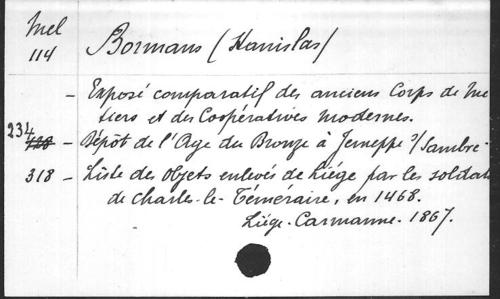 Mel
114
Bormans (Stanislas)
- Exposé comparatif des anciens Corps de Mé
tiers et des Coopératives modernes.
234
128 - Dépôt de l'Age du Bronze à Jemeppe s/Sambre-
318 - Liste des Objets enlevés de Liége par les soldats
de Charles-le-Téméraire, en 1468.
Liége-Carmanne-1867.